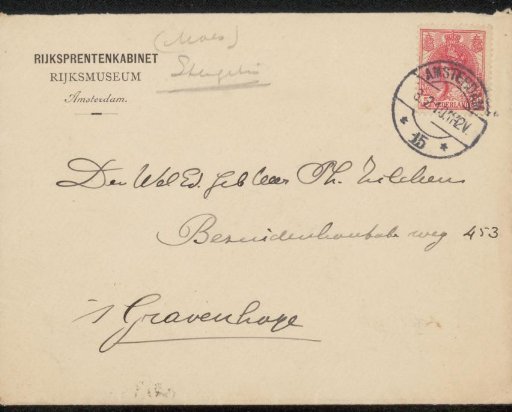 RIJKSPRENTENKABINET
RIJKSMUSEUM
Amsterdam.
(Moes)
AMSTERDAM
NEDERLAND
15
Den Wel Ed. geb Heer Ph. Zilcken
Bezuidenhoutsche weg 453
's Gravenhage